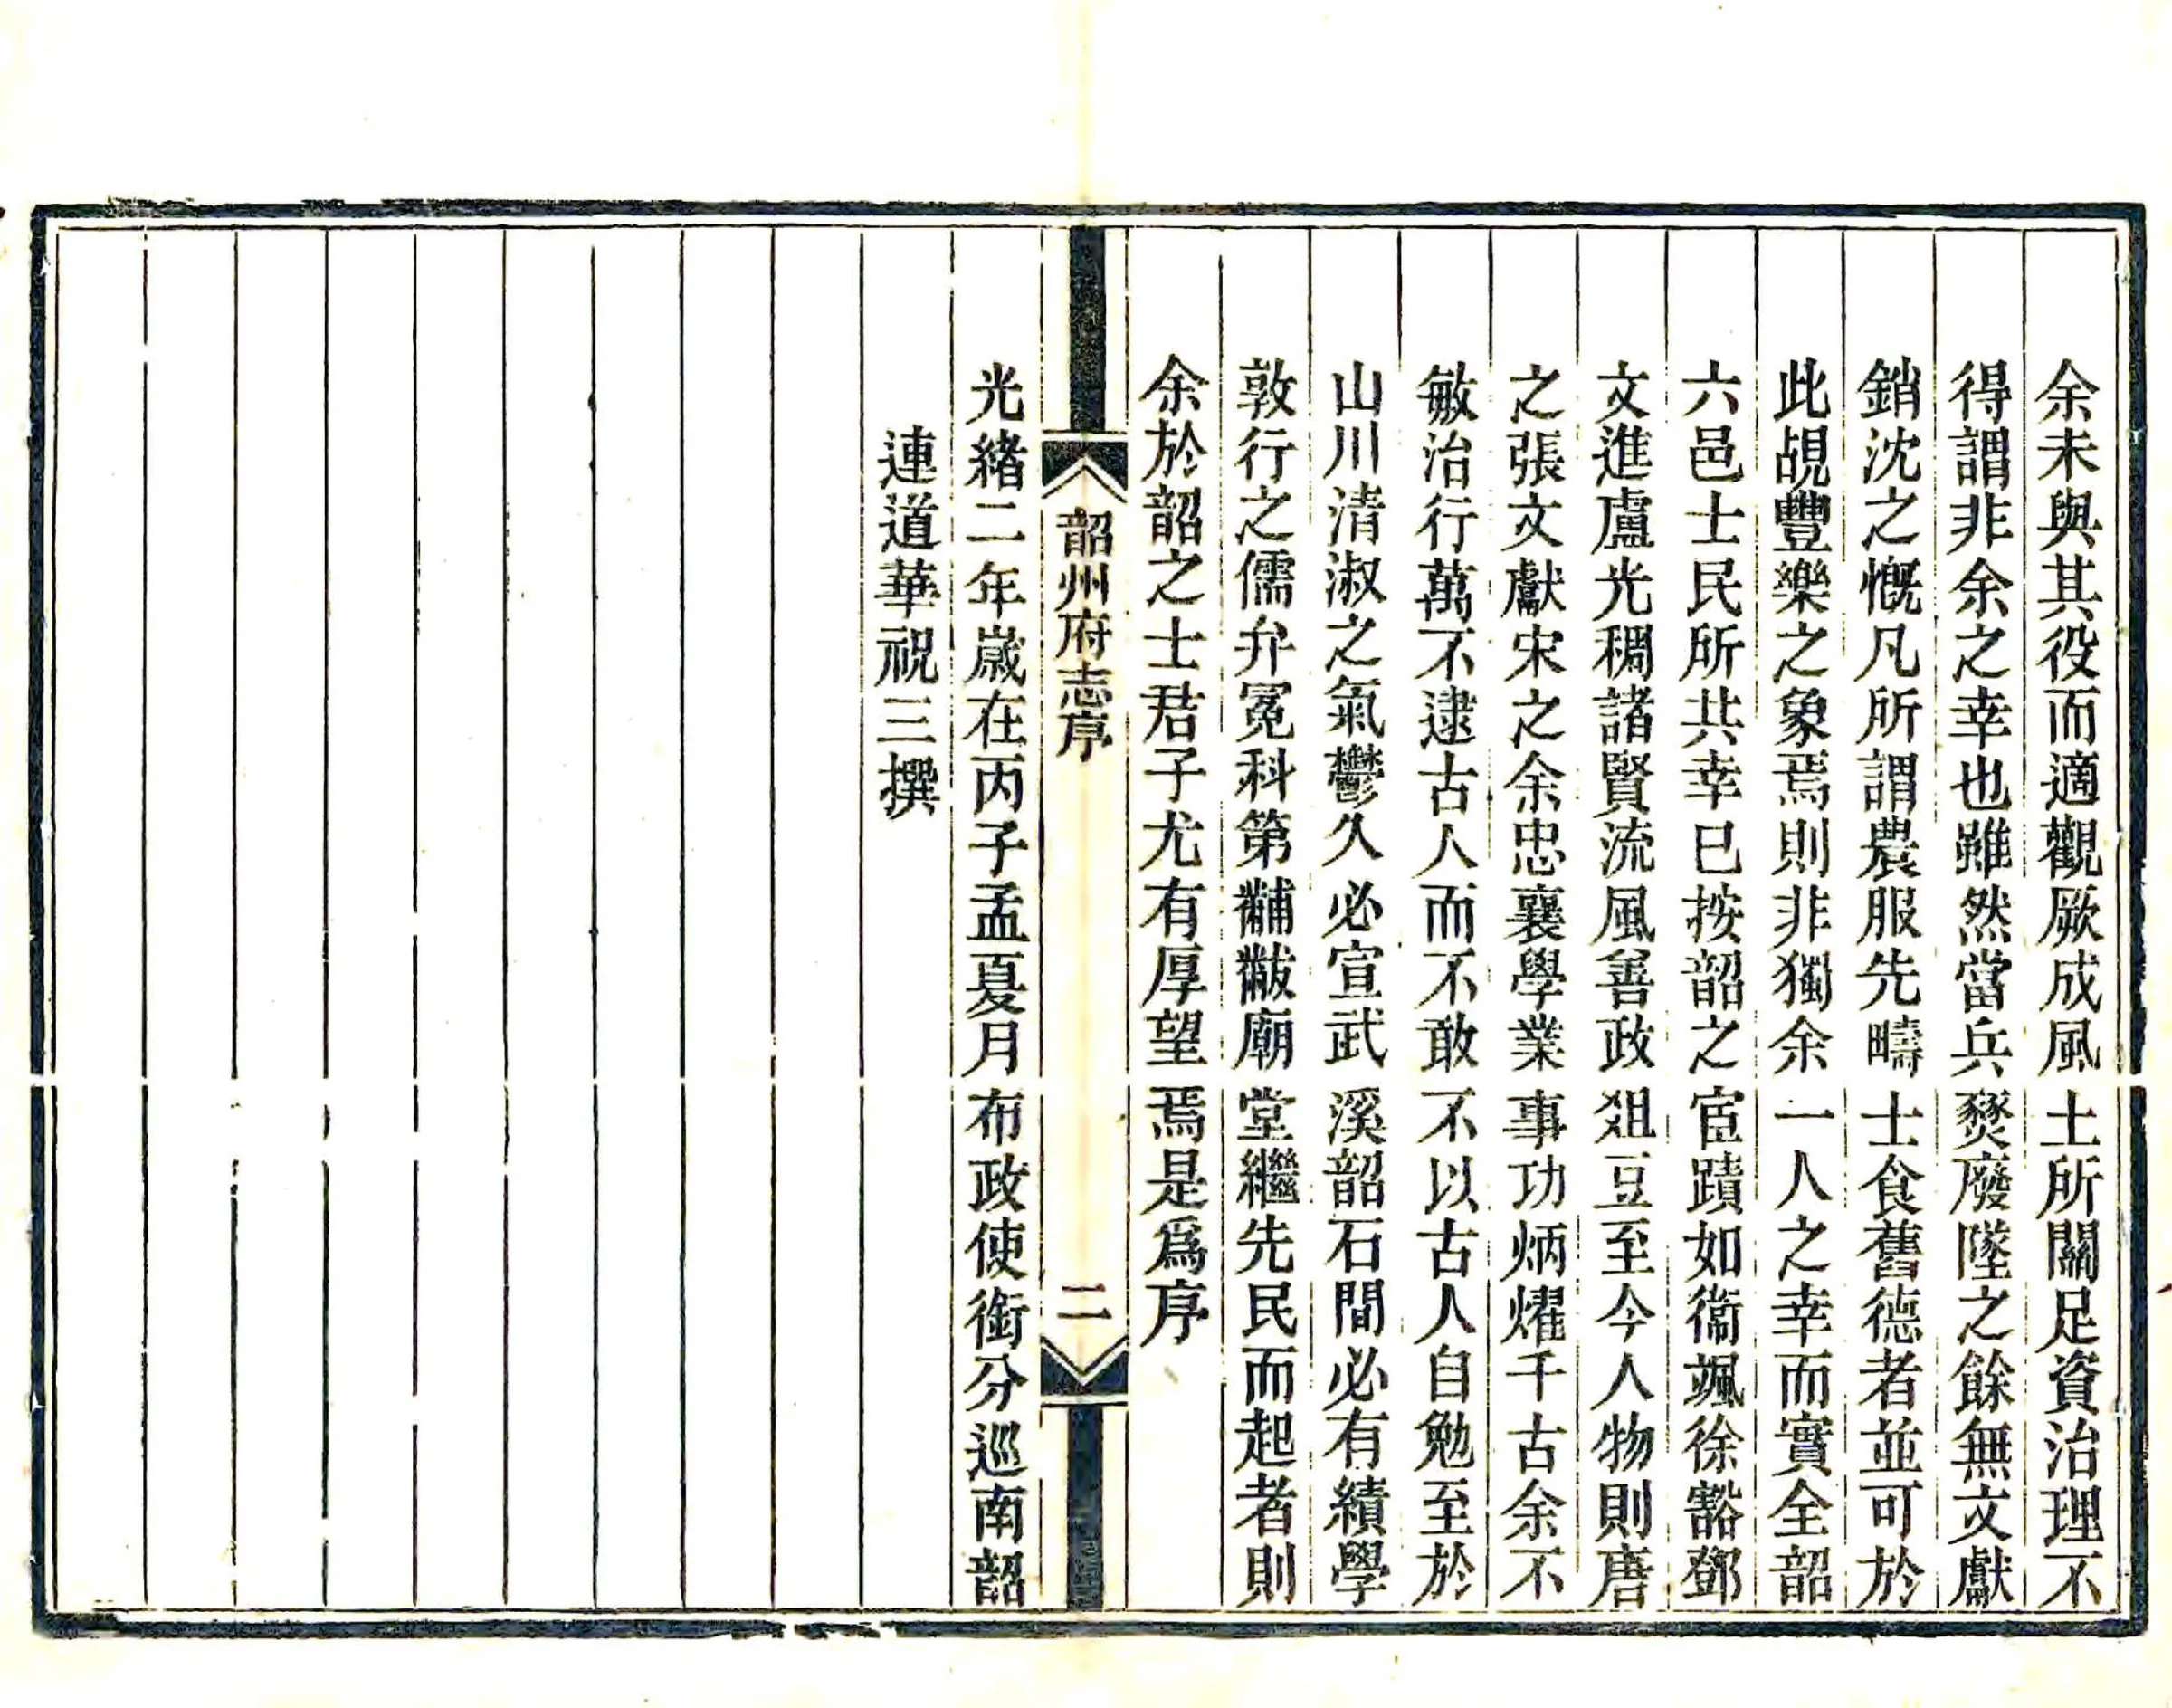 余未與其役而適觀厥成風土所關足資治理不
得謂非余之幸也雖然當兵燹廢墜之餘無文獻
銷沈之慨凡所謂農服先疇士食舊德者並可於
此覘豐樂之象焉則非獨余一人之幸而實全韶
六邑士民所共幸已按韶之宦蹟如衞颯徐豁鄧
文進盧光稠諸賢流風善政俎豆至今人物則唐
之張文獻宋之余忠襄學業事功炳燿千古余不
敏治行萬不逮古人而不敢不以古人自勉至於
山川清淑之氣鬱久必宣武溪韶石間必有績學
敦行之儒弁冕科第黼黻廟堂繼先民而起者則
余於韶之士君子尤有厚望焉是爲序
韶州府志序
二
光緒二年歲在丙子孟夏月布政使銜分巡南韶
連道華祝三撰